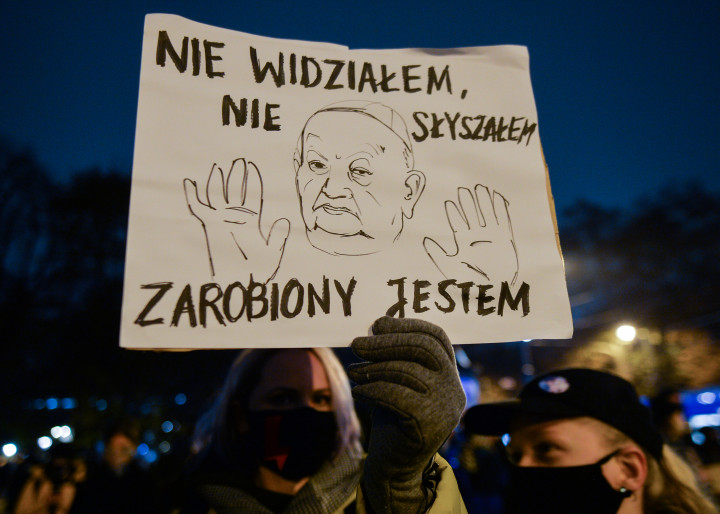 NIE WIDZIAŁEM,
NIE SŁYSZAŁEM
ZAROBIONY JESTEM